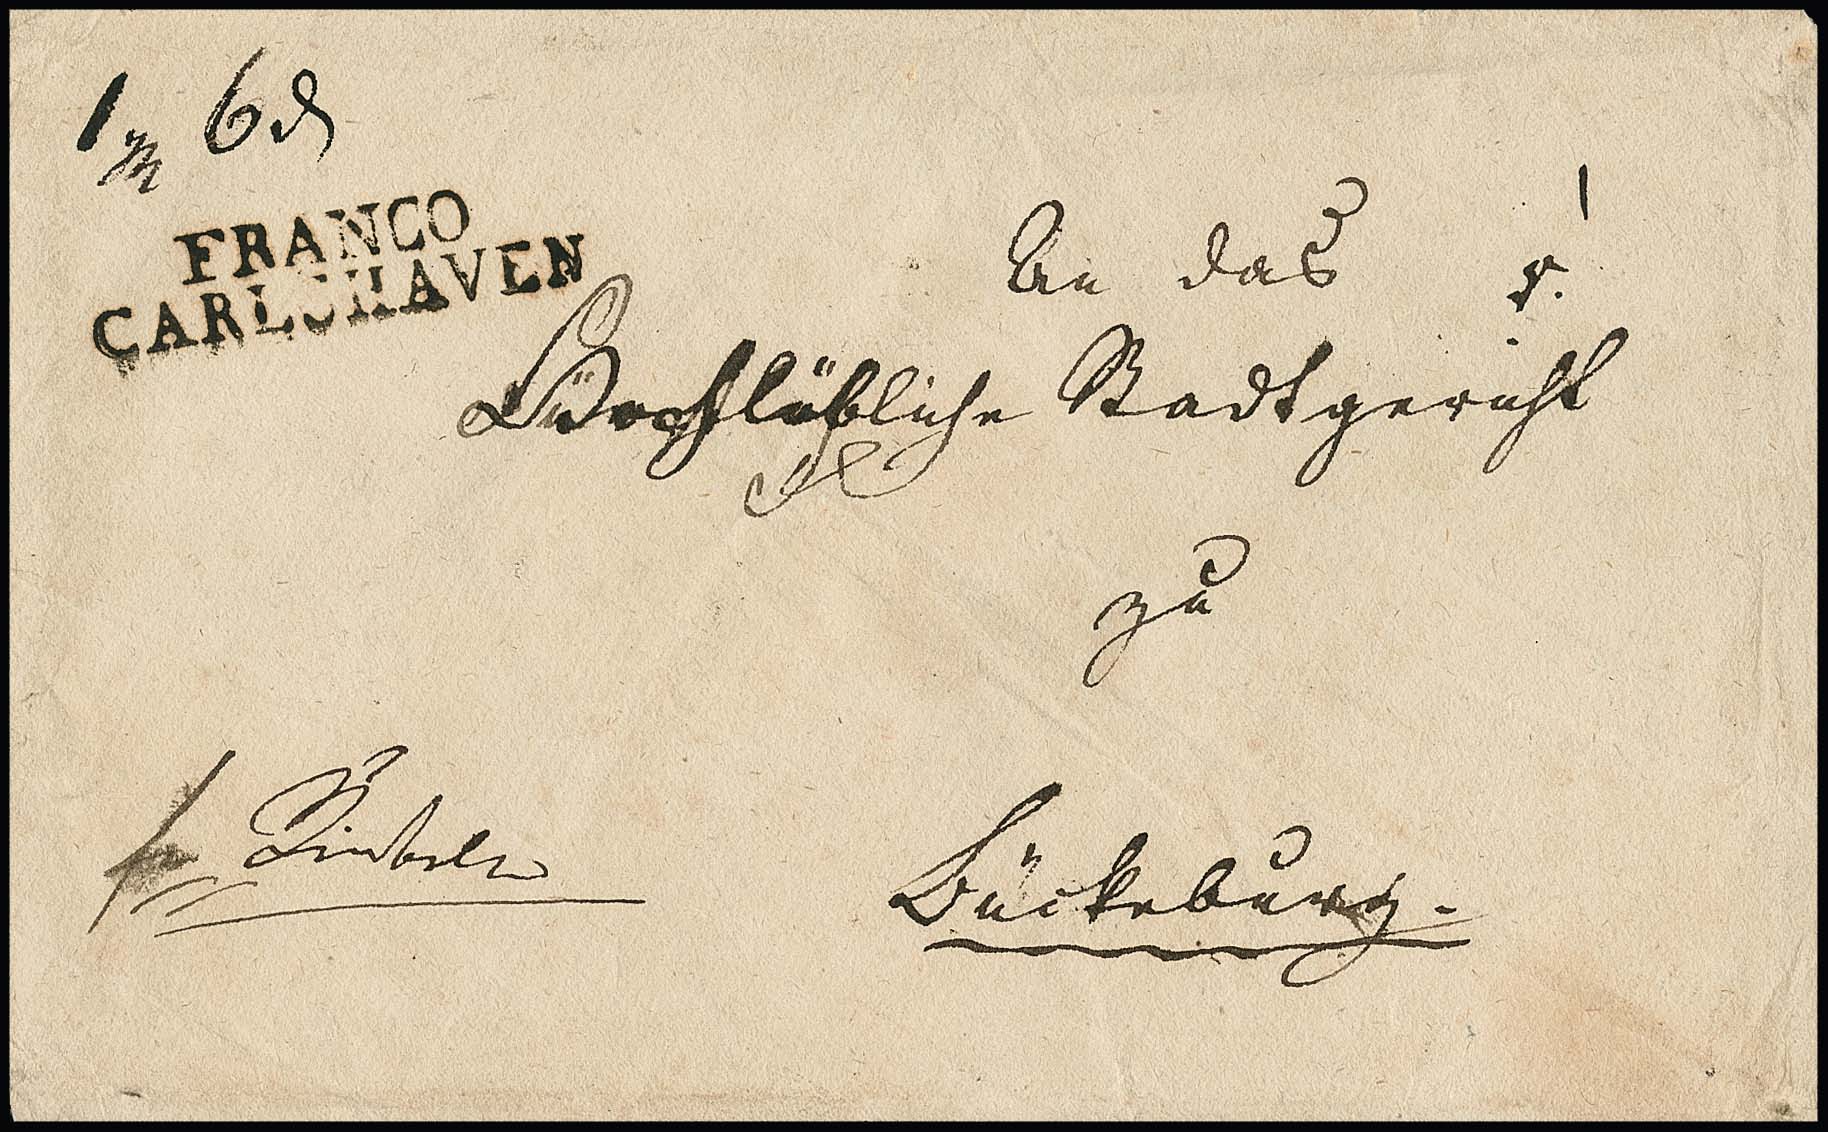 1 6 d
FRANCO
CARLSHAVEN
An das
Hochlöbliche Stadtgericht
zu
Bückeburg.